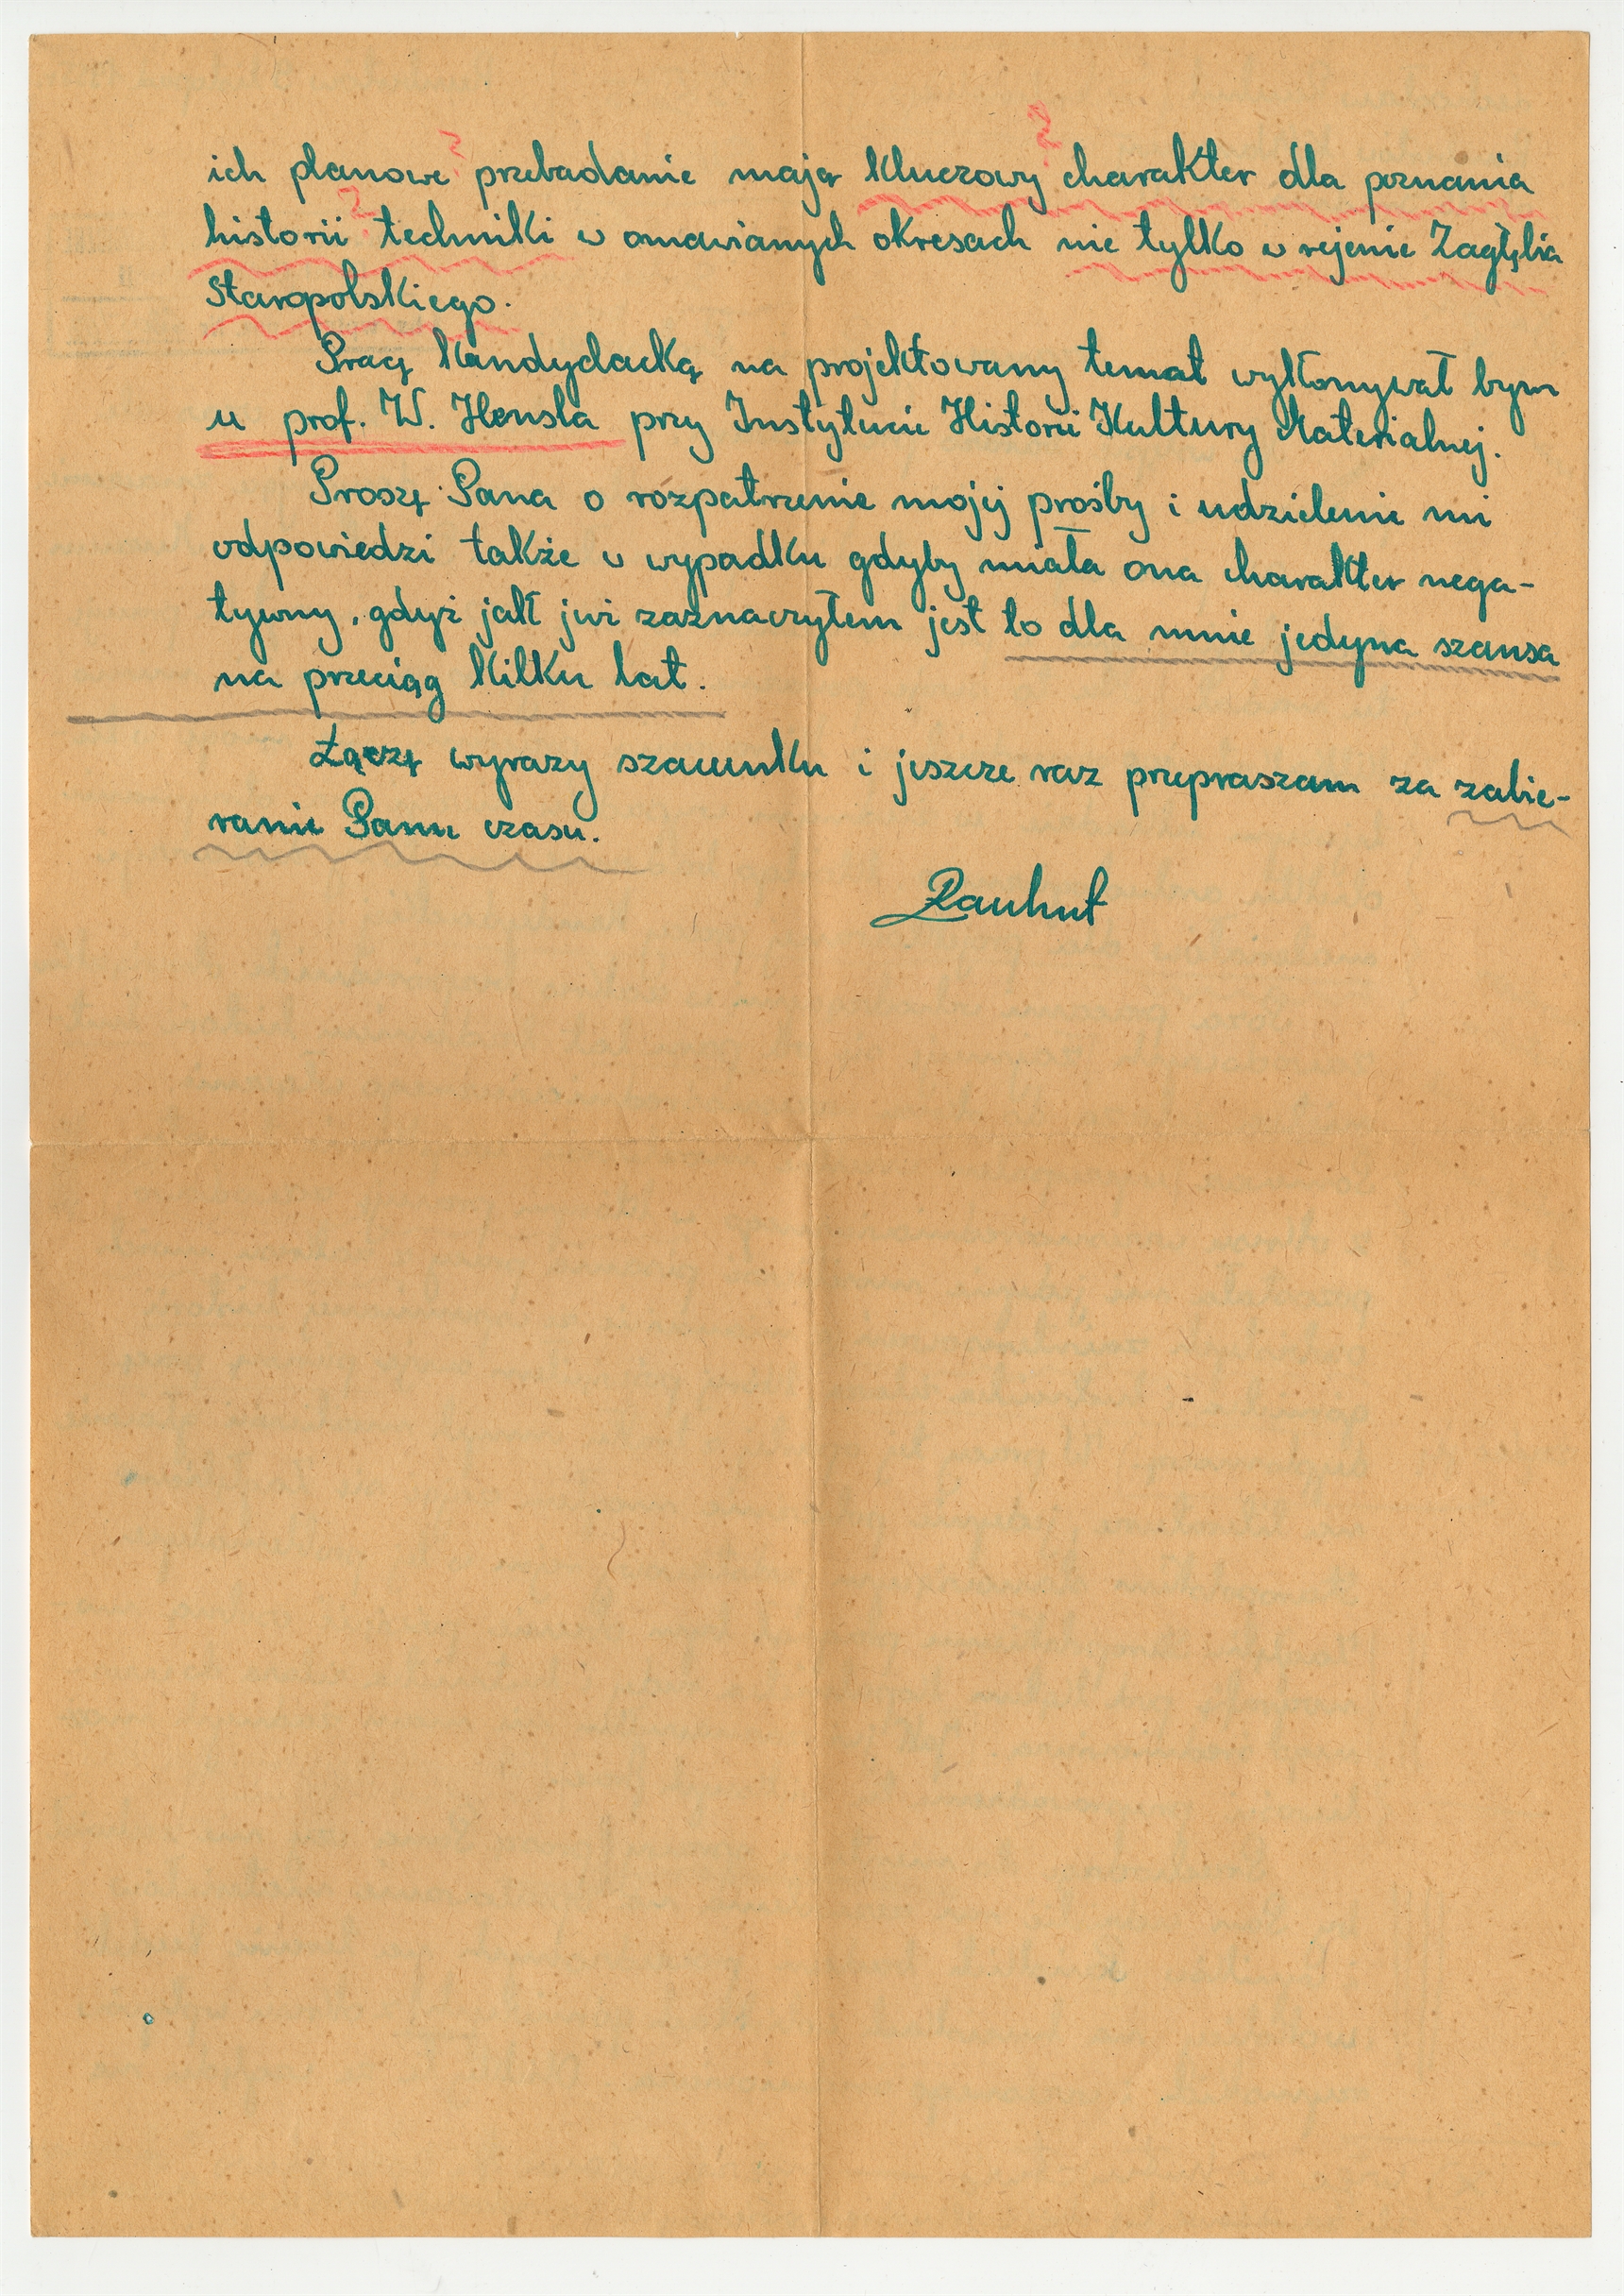 ich planowe przebadanie mają kluczowy charakter dla poznania
historii techniki w omawianych okresach nie tylko w rejenie Zagłębia
Staropolskiego.
Pracę kandydacką na projektowany temat wykonywał bym
u prof. W. Hensla przy Instytucie Historii Kultury Materialnej.
Proszę Pana o rozpatrzenie mojej prośby i udzielenie mi
odpowiedzi także w wypadku gdyby miała ona charakter nega-
tywny, gdyż jak już zaznaczyłem jest to dla mnie jedyna szansa
na przeciąg kilku lat.
Łączę wyrazy szacunku i jeszcze raz przepraszam za zabie-
ranie Panu czasu.
Rauhut